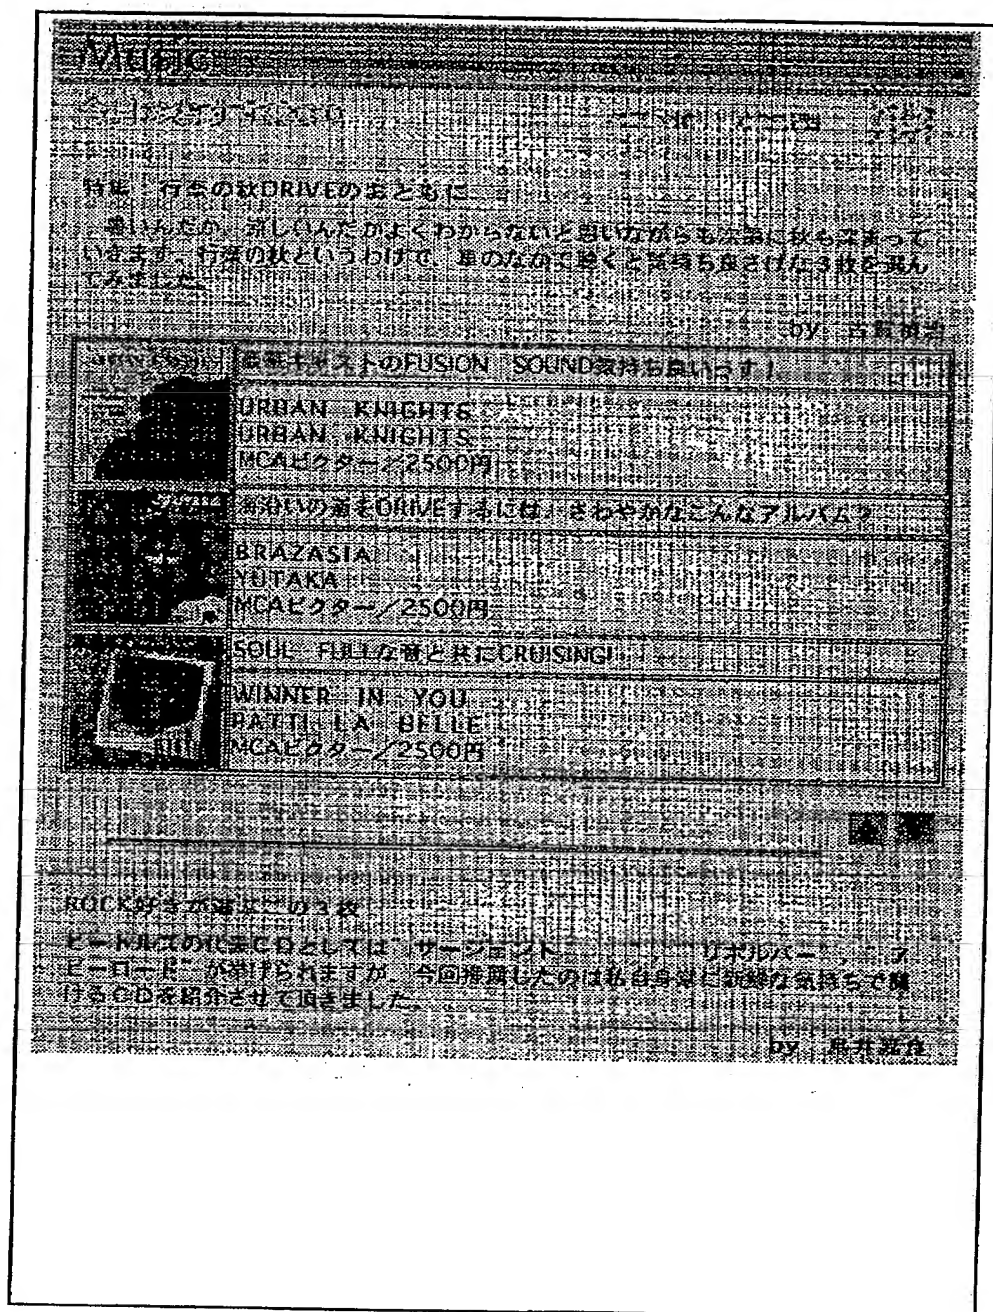 Music
特集：行楽の秋DRIVEのおともに
暑いんだか、涼しいんだかよくわからないと思いながらも次第に秋も深まって
いきます。行楽の秋というわけで、車のなかで聴くと気持ち良さげな3枚を選ん
でみました。
by
豪華キャストのFUSION SOUND気持ち良いっす！
URBAN KNIGHTS
URBAN KNIGHTS
MCAビクター／2500円
海沿いの道をDRIVEするには、さわやかなこんなアルバム？
BRAZASIA
YUTAKA
MCAビクター／2500円
SOUL FULLな音と共にCRUISING!
WINNER IN YOU
PATTI LA BELLE
MCAビクター／2500円
ROCK好きが選ぶこの3枚
ビートルズの代表CDとしては サージェント リボルバー ア
ビーロード が挙げられますが、今回推薦したのは私自身常に新鮮な気持ちで聴
けるCDを紹介させて頂きました。
by